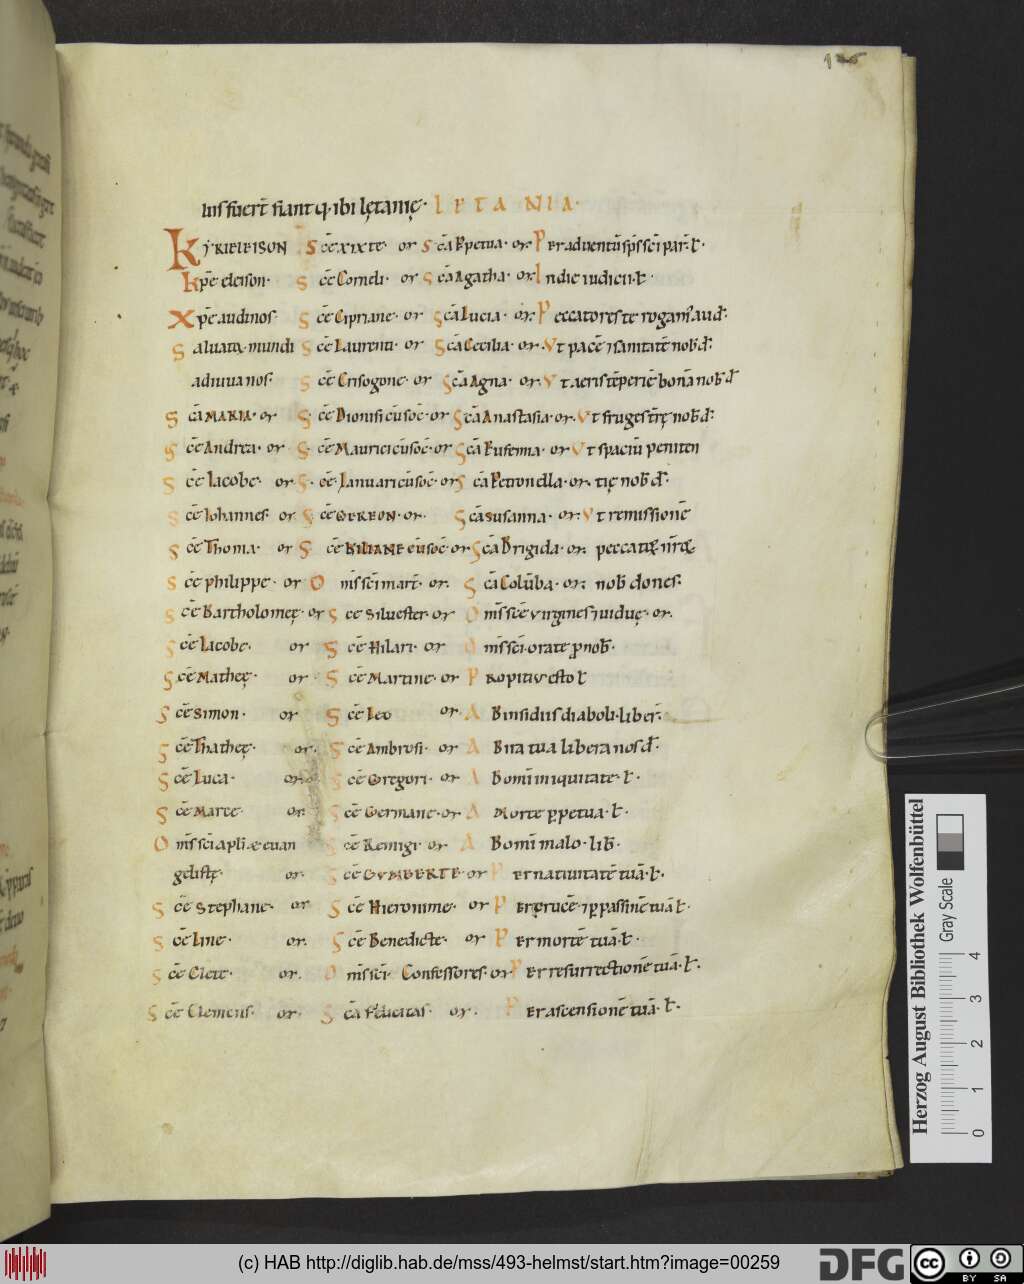 125
luis fuer̄t fiant q· ibi lętanię· LETANIA·
Ky̓RIELEISON Sc̄e XIXTE· or Sc̄a Ꝑpetua· or· Per aduentū sp̄s sc̄i par̄· ł·
kp̄e eleison· Sc̄e Corneli· or Sc̄a Agatha· or· In die iudicii· ł·
Xp̄e audi nos· Sc̄e Cipriane· or Sc̄a Lucia· or· Peccatores te rogam̄ aud̄·
Saluator mundi Sc̄e Laurenti· or Sc̄a Cecilia· or· Vt pacē ⁊ sanitatē nob̄ d̄·
adiuua nos· Sc̄e Crisogone· or Sc̄a Agna· or· Vt aeris tēperiē bonā nob̄ d̄
Sc̄a MARIA· or Sc̄e Dionisi cū soc̄· or Sc̄a Anastasia· or· Vt fruges t̄rę nob̄ d̄·
Sc̄e Andrea· or Sc̄e Maurici cū soc̄· or Sc̄a Eufemia· or Vt spaciū peniten
Sc̄e Iacobe· or Sc̄e Ianuari cū soc̄· or Sc̄a Petronella· or· tię nob̄ d̄·
Sc̄e Iohannes· or Sc̄e GEREON· or· Sc̄a Susanna· or· Vt remissionē
Sc̄e Thoma· or Sc̄e KILIANE cū soc̄· or Sc̄a Brigida· or· peccatoꝝ nr̄oꝝ
Sc̄e philippe· or Om̄s sc̄i mart̄· or· Sc̄a Colūba· or· nob̄ dones·
Sc̄e Bartholomeę· or Sc̄e Siluester· or Om̄s sc̄e virgines ⁊ uiduę· or·
Sc̄e Iacobe· or Sc̄e Hilari· or Om̄s sc̄i· orate ꝓ nob̄·
Sc̄e Matheę· or Sc̄e Martine· or PROPITIUS esto ł
Sc̄e Simon· or Sc̄e Leo or AB insidiis diaboli· liber̄·
Sc̄e Thatheę· or· Sc̄e Ambrosi· or AB ira tua libera nos d̄·
Sc̄e Luca· or· Sc̄e Gregori· or AB om̄i iniquitate· ł·
Sc̄e Marce· or· Sc̄e Germane· or A Morte ꝑpetua· ł·
Om̄s sc̄i apl̄i æ euan Sc̄e Remigi· or AB om̄i malo· lib̄·
gelistę· or· Sc̄e GVMBERTE· or Per natiuitatē tuā· ł·
Sc̄e Stephane· or Sc̄e Hieronime· or Per crucē· ⁊ passionē tuā ł·
Sc̄e Line· or· Sc̄e Benedicte· or Per mortē tuā· ł·
Sc̄e Clete· or· Om̄s sc̄i· Confessores· or Per resurrectionē tuā· ł·
Sc̄e Clemens· or· Sc̄a Felicitas· or· Per ascensionē tuā· ł·
Herzog August Bibliothek Wolfenbüttel
Gray Scale
0 1 2 3 4
(c) HAB http://diglib.hab.de/mss/493-helmst/start.htm?image=00259
DFG
cc BY SA